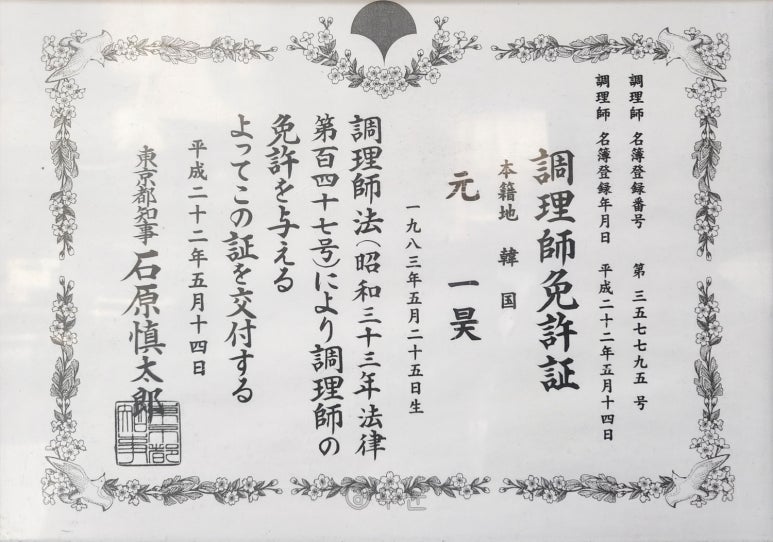 調理師 名簿登録番号 第 三五七七九五 号
調理師 名簿登録年月日 平成二十二年五月十四日
調理師免許証
本籍地 韓国
元 一昊
一九八三年五月二十五日生
調理師法(昭和三十三年法律
第百四十七号)により調理師の
免許を与える
よってこの証を交付する
平成二十二年五月十四日
東京都知事 石原慎太郎